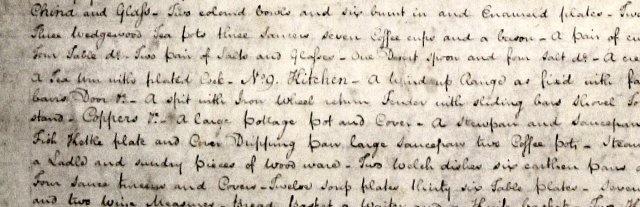 China and Glass - Two colored bowls and six burnt in and Enameld plates - Two
Three Wedgewood Tea pots three saucers seven Coffee cups and a bason - A pair of cu
Four Table do. - Two pair of Salts and Glasses - One Desart spoon and four salt do. - A cre
A Tea Urn with plated Cock - No. 9. Kitchen - A wind up Range as fixed with fa
bars Door &c. - A spit with Iron Wheel return Fender with sliding bars Shovel To
stand - Coppers &c. - A large Pottage pot and Cover - A stewpan and saucepan
Fish Kettle plate and Cover Dripping pan large saucepan two Coffee pots - Steam
a Ladle and sundry pieces of wood ware - Two Welch dishes six earthen pans
Four Sauce tureens and Covers - Twelve soup plates thirty six Table plates - Seven
and two Wine Measures - Bread basket a Waiter and basket - Two